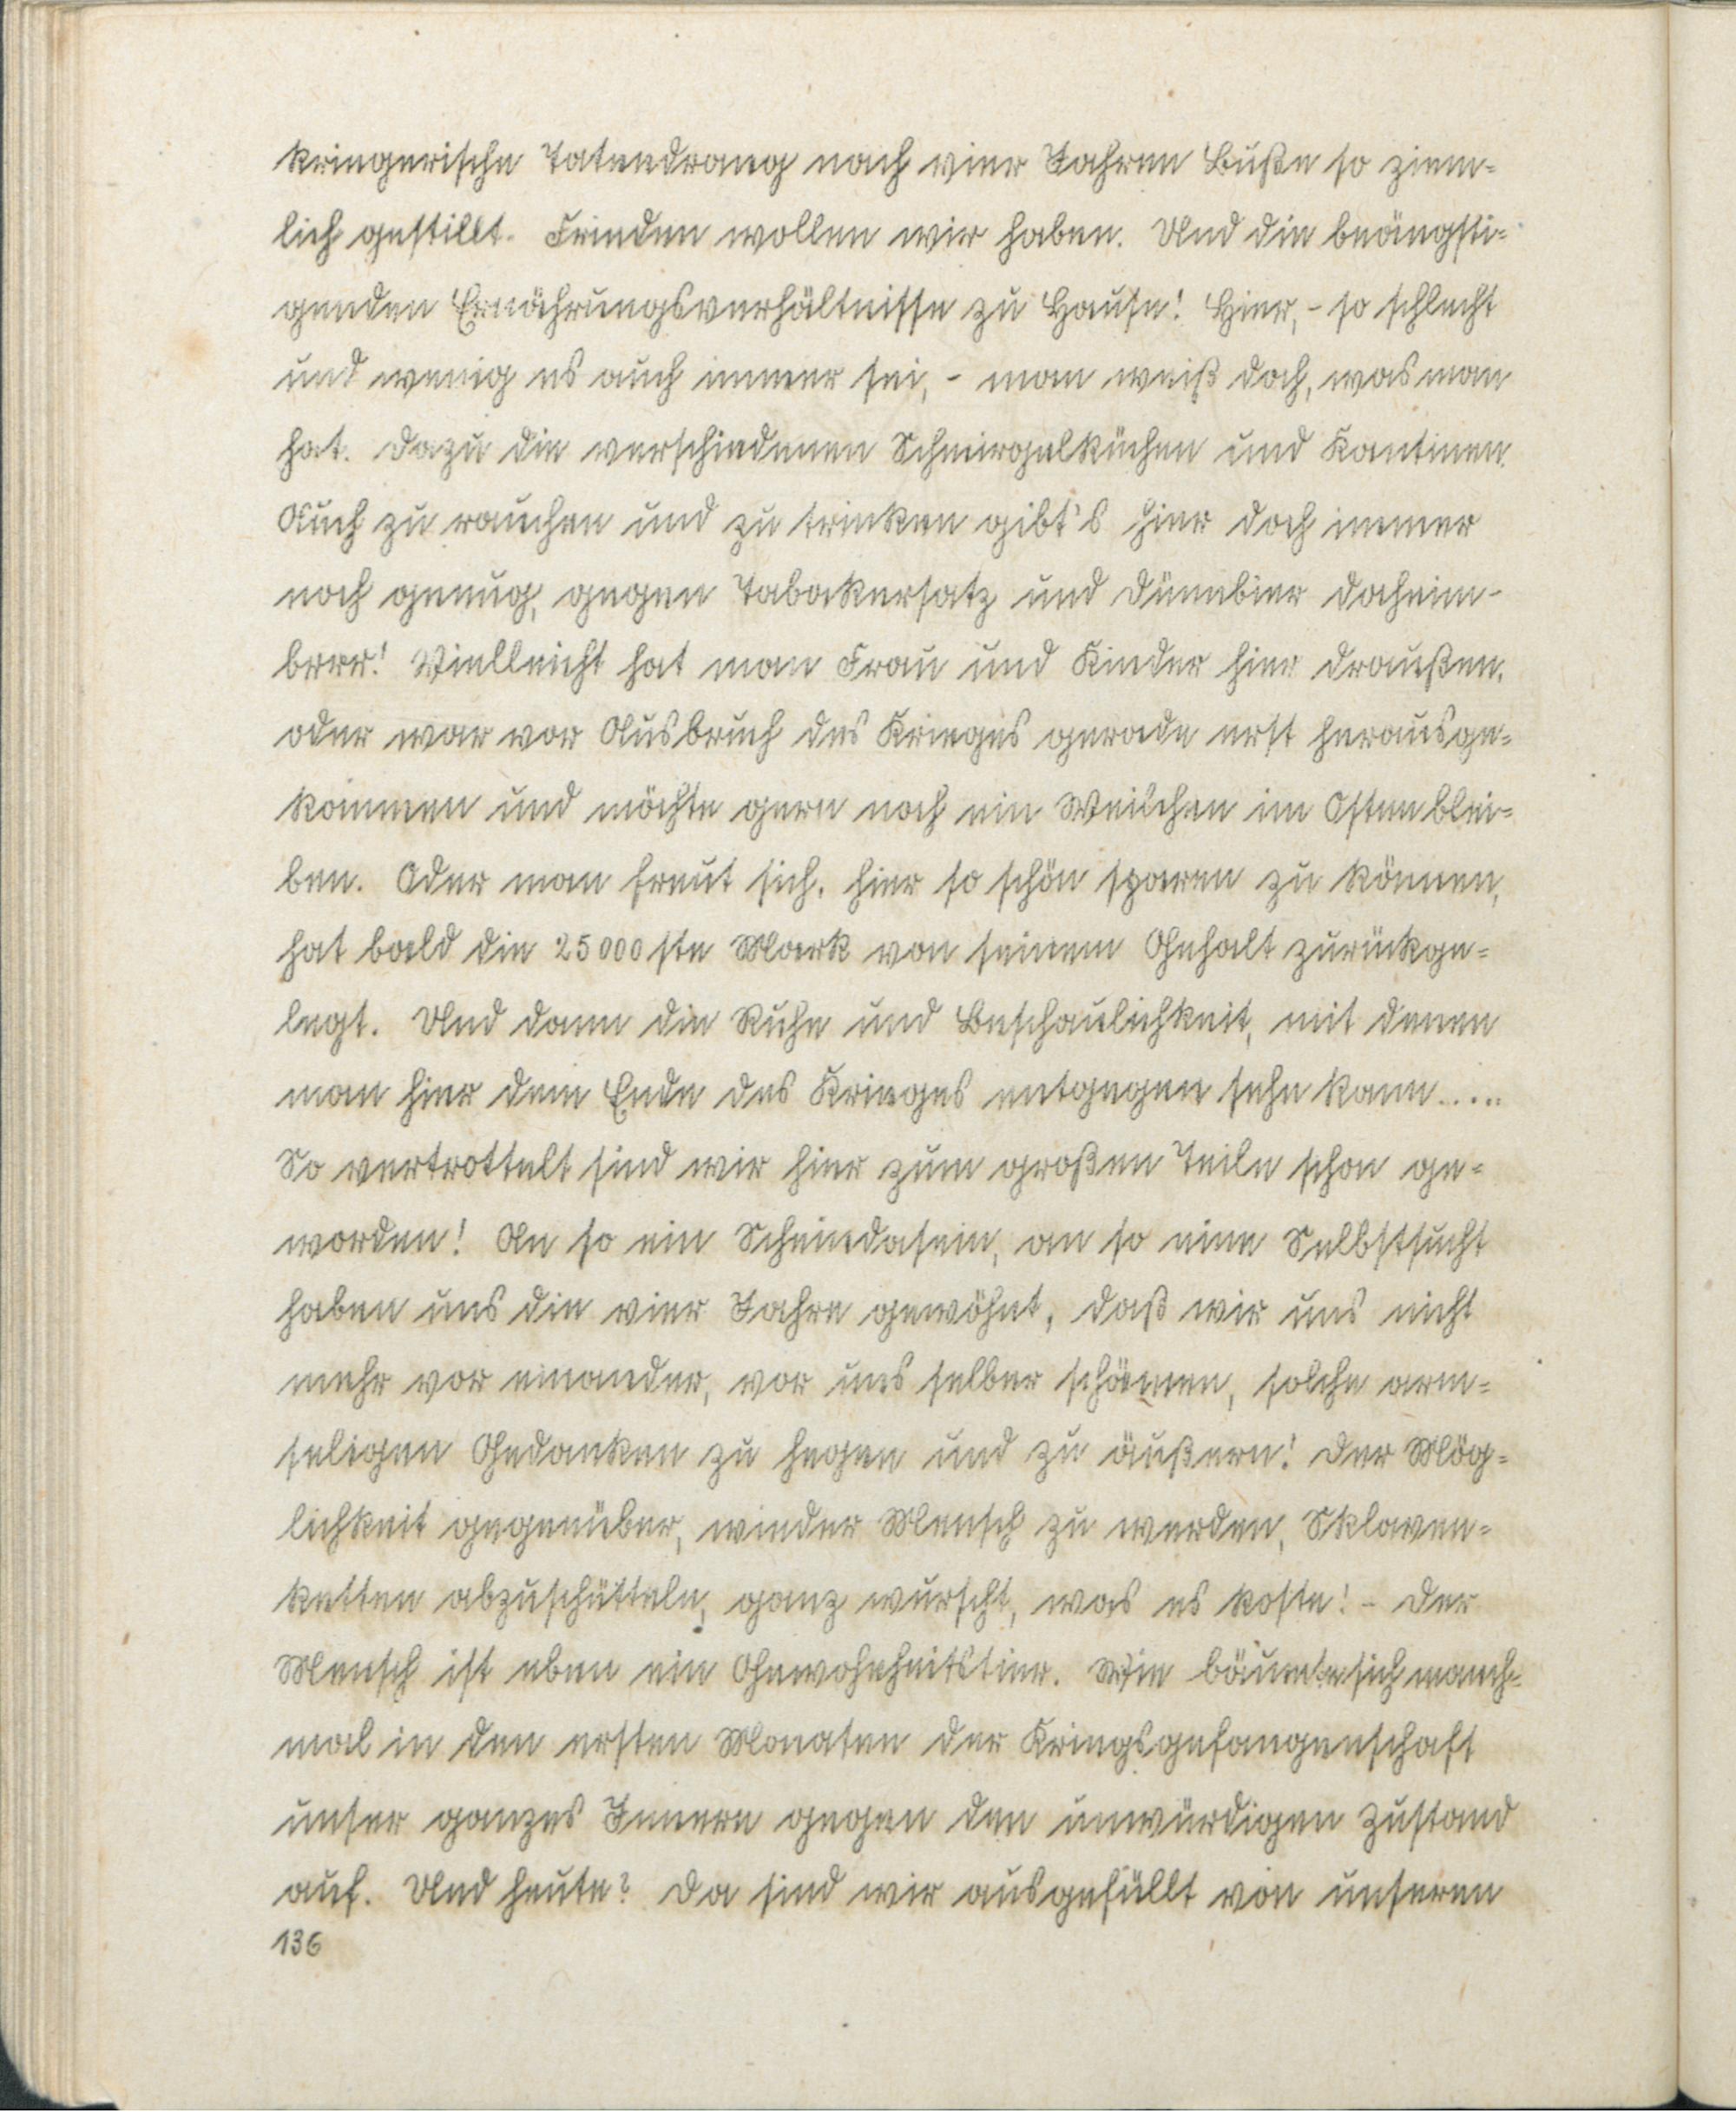 kriegerische Tatendrang nach vier Jahren Buße so ziem-
lich gestillt. Frieden wollen wir haben. Und die beängsti-
genden Ernährungsverhältnisse zu Hause! Hier, - so schlecht
und wenig es auch immer sei, - man weiß doch, was man
hat. Dazu die verschiedenen Schmirgelküchen und Kantinen.
Auch zu rauchen und zu trinken gibt's hier doch immer
noch genug, gegen Tabakersatz und Dünnbier daheim-
brrr! Vielleicht hat man Frau und Kinder hier draußen.
oder war vor Ausbruch des Krieges gerade erst herausge-
kommen und möchte gern noch ein Weilchen im Osten blei-
ben. Oder man freut sich, hier so schön sparen zu können,
hat bald die 25000ste Mark von seinem Gehalt zurückge-
legt. Und dann die Ruhe und Beschaulichkeit, mit denen
man hier dem Ende des Krieges entgegen sehn kann.....
So vertrottelt sind wir hier zum großen Teile schon ge-
worden! An so ein Scheindasein, an so eine Selbstsucht
haben uns die vier Jahre gewöhnt, daß wir uns nicht
mehr vor einander, vor uns selber schämen, solche arm-
seligen Gedanken zu hegen und zu äußern! Der Mög-
lichkeit gegenüber, wieder Mensch zu werden, Sklaven-
ketten abzuschütteln, ganz wurscht, was es koste! - Der
Mensch ist eben ein Gewohnheitstier. Wie bäumte sich manch-
mal in den ersten Monaten der Kriegsgefangenschaft
unser ganzes Innere gegen den unwürdigen Zustand
auf. Und heute? Da sind wir ausgefüllt von unseren
136